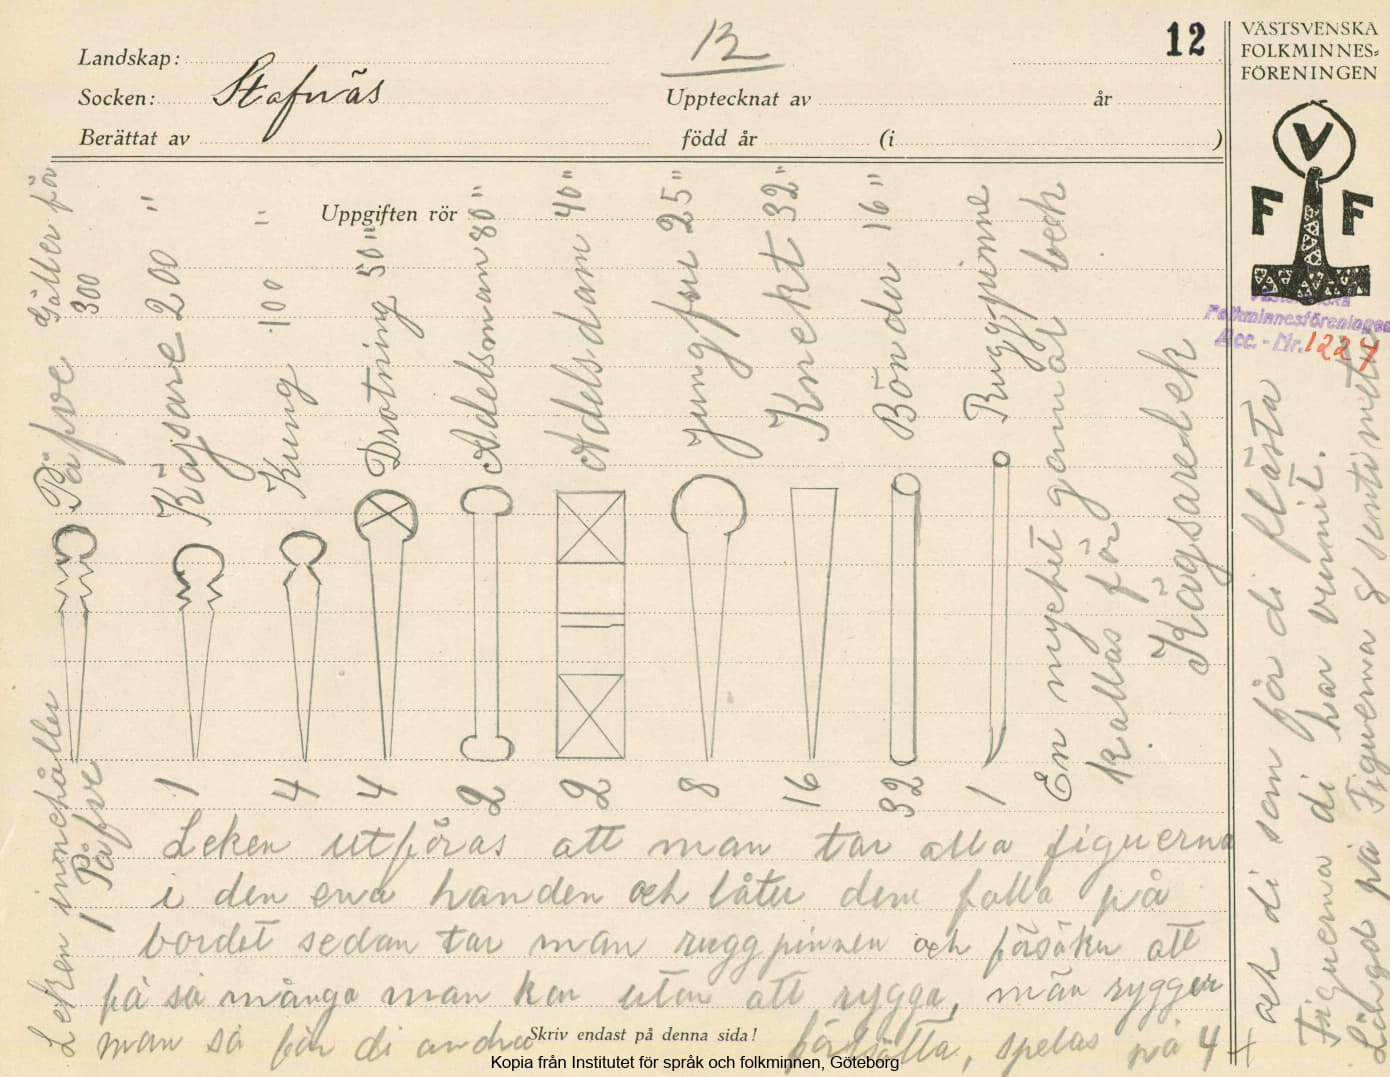 12
12
VÄSTSVENSKA
FOLKMINNES-
FÖRENINGEN
V
F F
Landskap:
Socken: Stafnäs
Upptecknat av år
Berättat av född år (i )
Uppgiften rör
Folkminnesföreningen
Acc. - Nr. 1227
Gäller för
Påfve 300
Käjsare 200 "
Kung 100 "
Drotning 50 "
Adelsman 80 "
Adelsdam 40 "
Jungfru 25 "
Knekt 32 "
Bönder 16 "
Ruggpinne
En mycket gamal leck
kallas för
KäGsarelek
Leken innehåller
1 Påfve
1
4
4
2
2
8
16
32
1
Leken utföras att man tar alla figuerna
i den ena handen och låter dem falla på
bordet sedan tar man ruggpinnen och försöker att
få så många man kan utan att rygga, män rygger
man så får di andra fårdsätta, spelas på 4
Skriv endast på denna sida!
och di som får di flästa
Figuerna di har vunnit.
Längd på Figuerna 8 sentimeter
Kopia från Institutet för språk och folkminnen, Göteborg